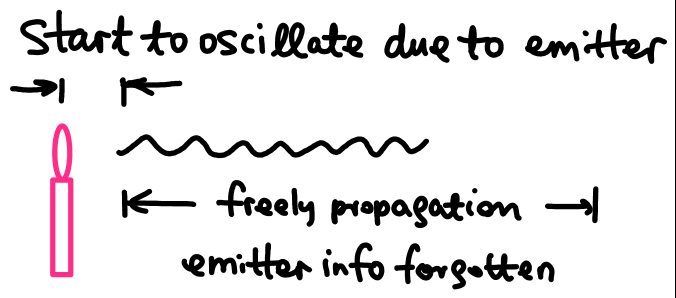 Start to oscillate due to emitter
freely propagation
emitter info forgotten